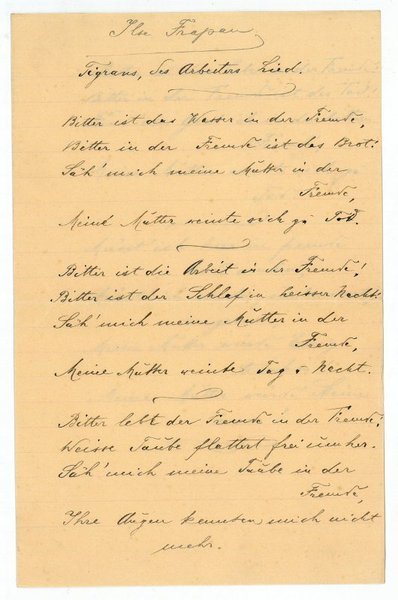 Ilse Frapan
Tigrans, des Arbeiters Lied.
Bitter ist das Wasser in der Fremde,
Bitter in der Fremde ist das Brot!
Säh' mich meine Mutter in der
Fremde,
Meine Mutter weinte sich zu Tod.
Bitter ist die Arbeit in der Fremde!
Bitter ist der Schlaf in heisser Nacht.
Säh' mich meine Mutter in der
Fremde,
Meine Mutter weinte Tag u Nacht.
Bitter lebt der Fremde in der Fremde!
Weisse Taube flattert frei umher.
Säh' mich meine Taube in der
Fremde,
Ihre Augen kennten mich nicht
mehr.